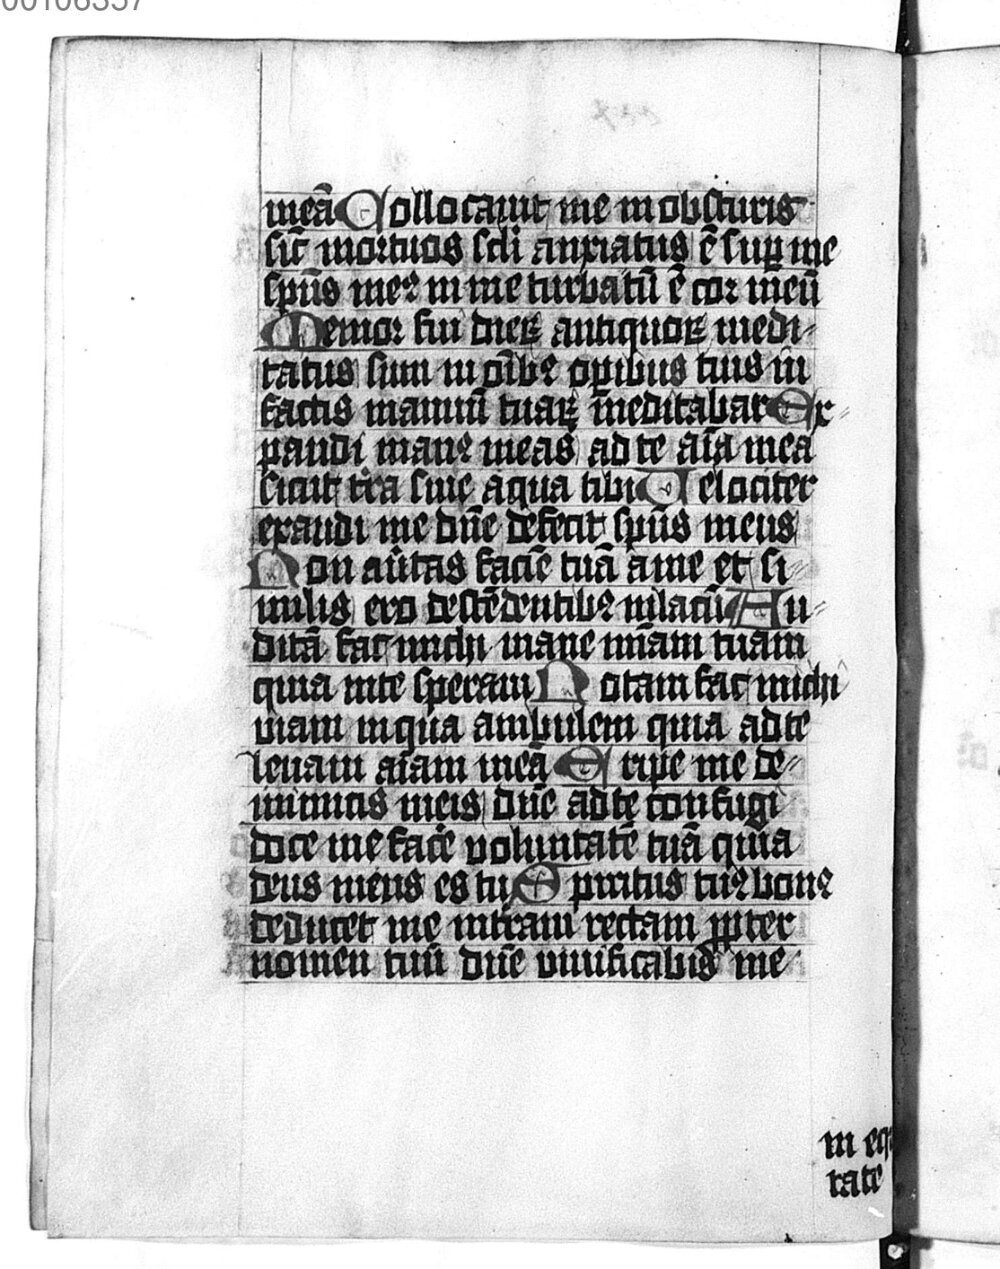 00106357
meā Collocauit me in obscuris
sic̄ mortuos scl̄i anxiatus ē sup̱ me
sp̄us meꝰ in me turbatū ē cor meū
Memor fui dieꝝ antiquoꝝ medi⸗
tatus sum in oīb̄ꝰ op̱ibus tuis in
factis manuū tuaꝝ meditabar Ex⸗
pandi manꝰ meas ad te aīa mea
sicut t̄ra sine aqua tibi Velociter
exaudi me dn̄e defecit sp̄us meus
Non au̅tas faciē tuā a me et si⸗
milis ero descēdentibꝰ in lacū Au⸗
ditā fac michi mane mīam tuam
quia in te speraui Notam fac michi
uiam in qua ambulem quia ad te
leuaui aīam meā Eripe me de⸗
inimicis meis dn̄e ad te confugi
doce me face̅ voluntatē tuā quia
deus meus es tu Spiritus tuꝰ bonꝰ
deducet me in t̄ram rectam ꝓpter
nomen tuū dn̄e viuificabis me
in eq
tate